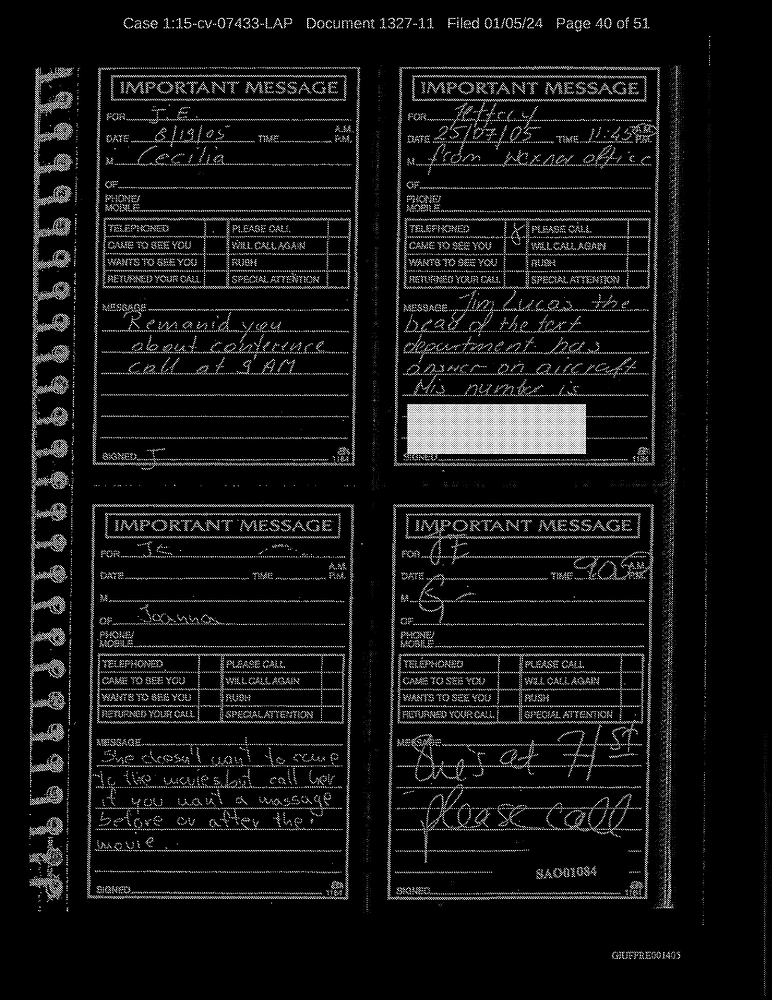 Case 1:15-cv-07433-LAP Document 1327-11 Filed 01/05/24 Page 40 of 51
IMPORTANT MESSAGE
FOR J.E.
DATE 8/19/05 TIME A.M. P.M.
M Cecilia
OF
PHONE/
MOBILE
TELEPHONED PLEASE CALL
CAME TO SEE YOU WILL CALL AGAIN
WANTS TO SEE YOU RUSH
RETURNED YOUR CALL SPECIAL ATTENTION
MESSAGE
Remanid you
about conference
call at 9 AM
SIGNED J 1184
IMPORTANT MESSAGE
FOR Jeffrey
DATE 25/07/05 TIME 11:45 A.M. P.M.
M from Wexner office
OF
PHONE/
MOBILE
TELEPHONED X PLEASE CALL
CAME TO SEE YOU WILL CALL AGAIN
WANTS TO SEE YOU RUSH
RETURNED YOUR CALL SPECIAL ATTENTION
MESSAGE Jim Lucas the
head of the
department has
answer on aircraft
His number is
SIGNED 1184
IMPORTANT MESSAGE
FOR JE
DATE TIME A.M. P.M.
M
OF Joanna
PHONE/
MOBILE
TELEPHONED PLEASE CALL
CAME TO SEE YOU WILL CALL AGAIN
WANTS TO SEE YOU RUSH
RETURNED YOUR CALL SPECIAL ATTENTION
MESSAGE
She doesn't want to come
to the movies but call her
if you want a massage
before or after the
movie.
SIGNED 1184
IMPORTANT MESSAGE
FOR JE
DATE TIME 905 A.M. P.M.
M G -
OF
PHONE/
MOBILE
TELEPHONED PLEASE CALL
CAME TO SEE YOU WILL CALL AGAIN
WANTS TO SEE YOU RUSH
RETURNED YOUR CALL SPECIAL ATTENTION
MESSAGE
She's at 71st
please call
SAO01084
SIGNED 1184
GIUFFRE001405